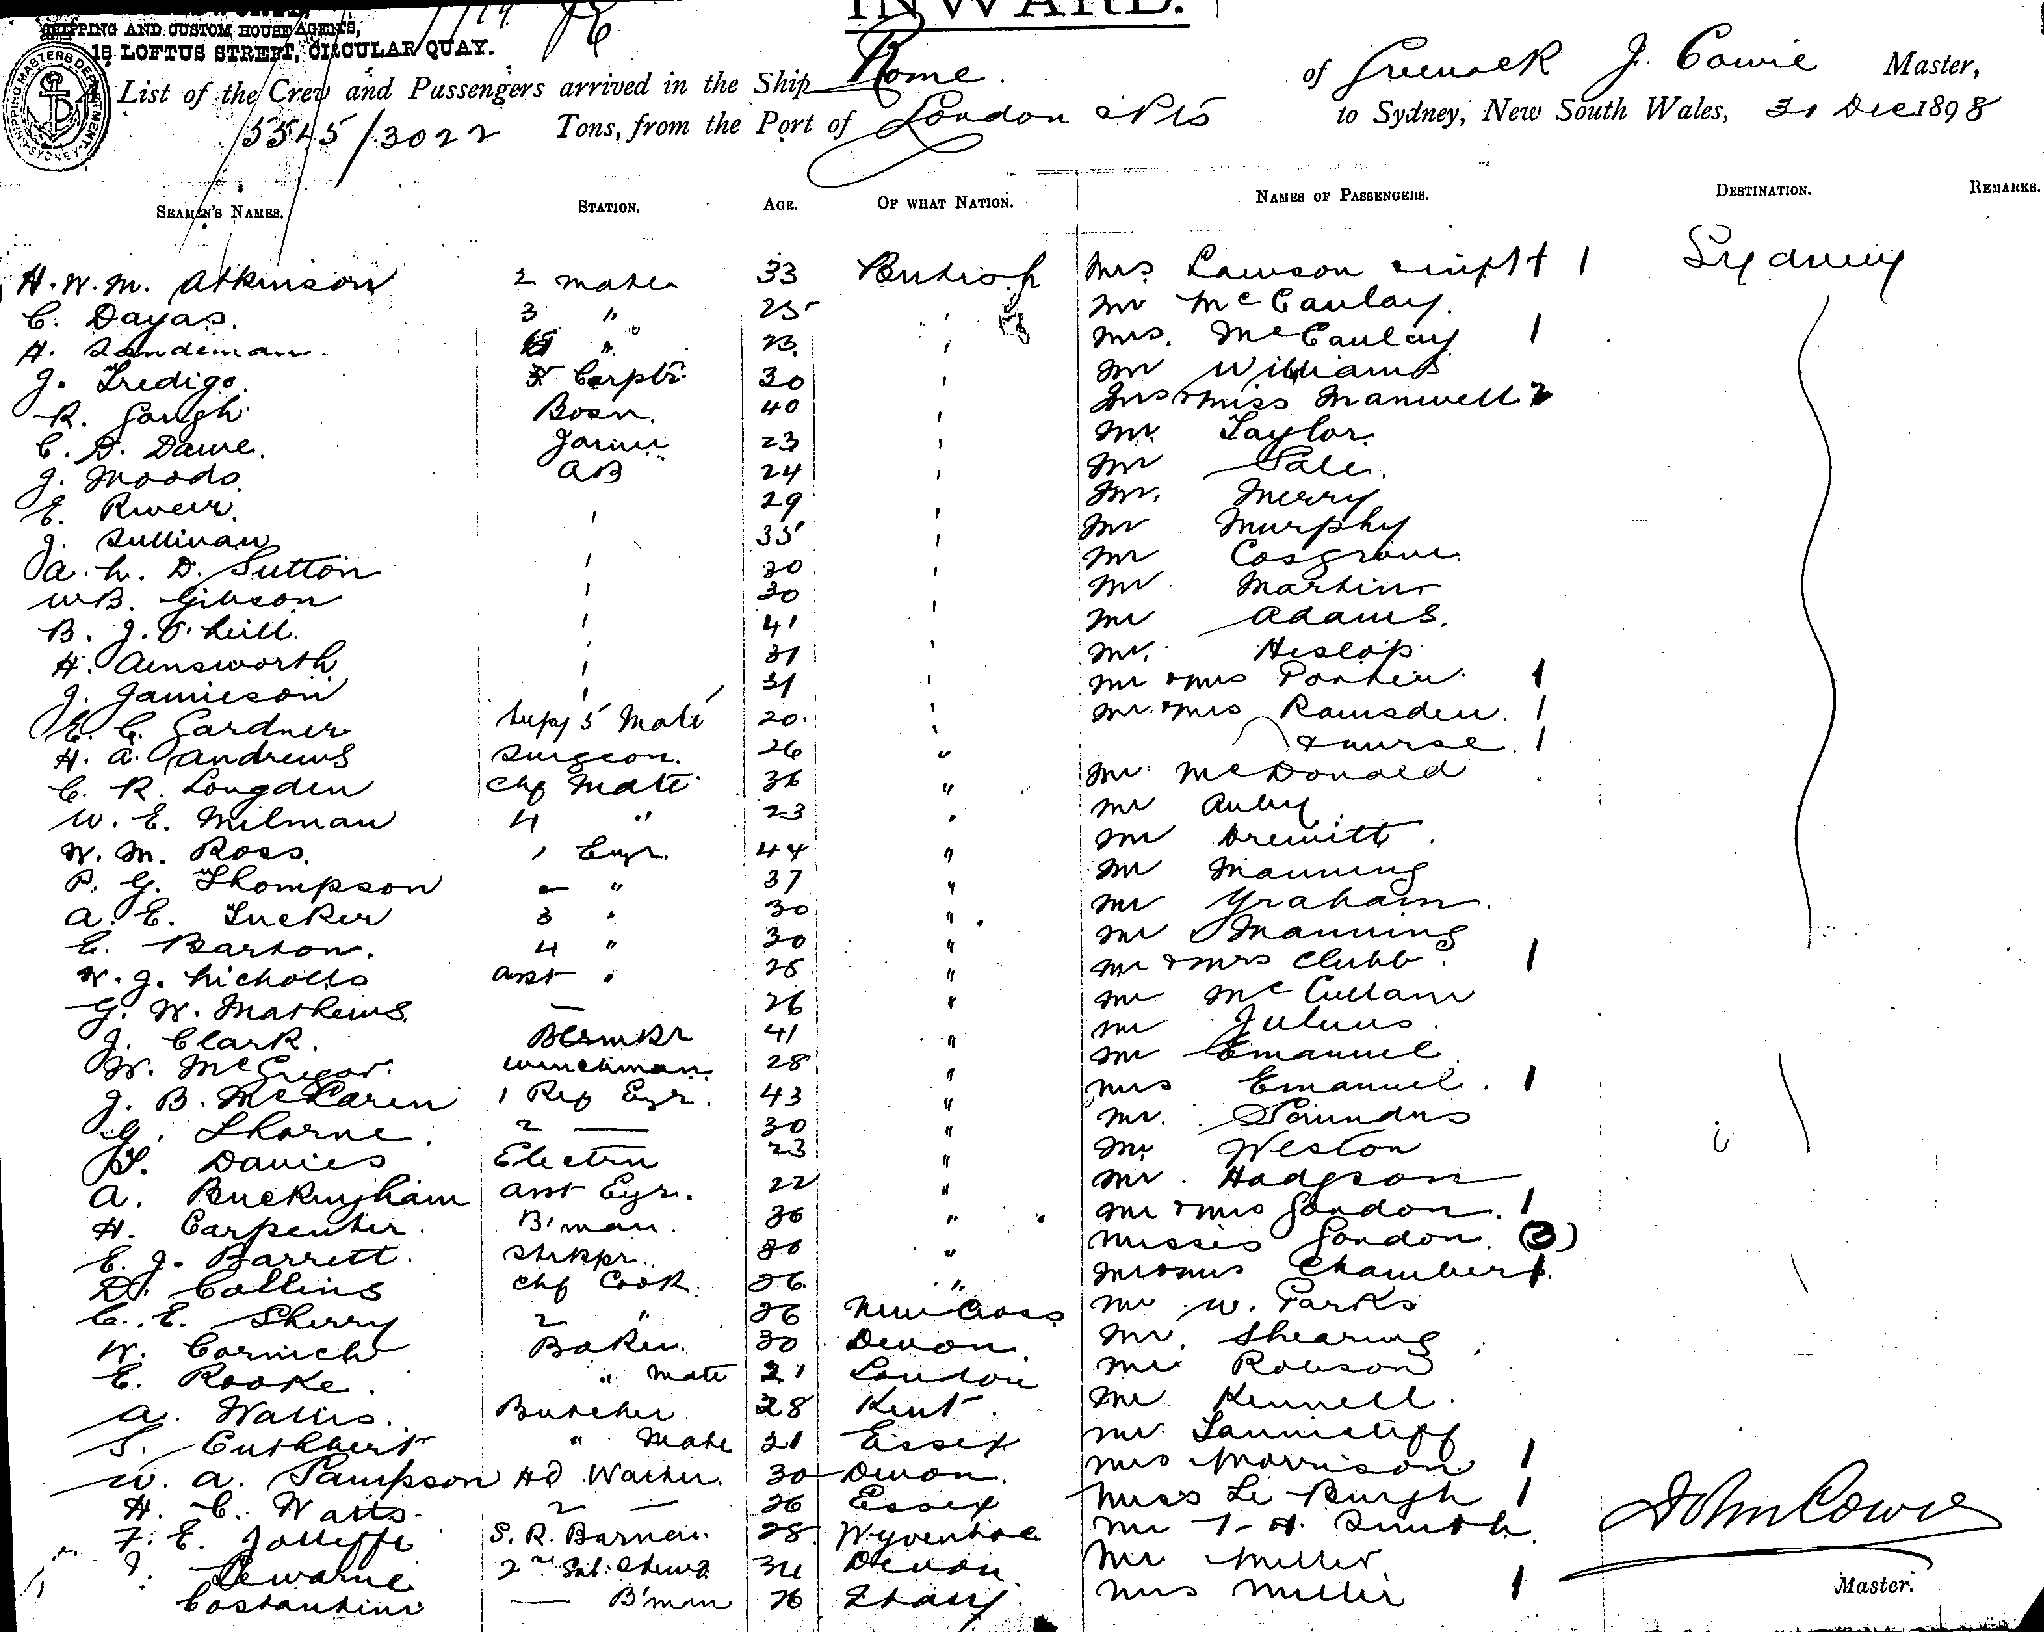 INWARD.
SHIPPING AND CUSTOM HOUSE AGENTS,
18 LOFTUS STREET, CIRCULAR QUAY.
List of the Crew and Passengers arrived in the Ship Rome of Greenock J. Cowie Master,
5545/3022 Tons, from the Port of London & Pts to Sydney, New South Wales, 31 Dec 1898
SEAMEN'S NAMES. STATION. AGE. OF WHAT NATION. NAMES OF PASSENGERS. DESTINATION. REMARKS.
H. W. M. Atkinson 2 Mate 33 British Mrs Lawson 1 Sydney
C. Dayas. 3 " 25 Mr McCaulay.
H. Sandeman " 23 Mrs. McCaulay 1
J. Tredigo. Carptr 30 Mr Williams
R. Gough Bosn. 40 Mrs & Miss Manwell 2
C. D. Dawe. Joiner 23 Mr Taylor
J. Woods AB 24 Mr Pale.
E. 29 Mr. Merry
J. Sullivan 35 Mr Murphy
A. L. D. Sutton 30 Mr Cosgrove
W B. Gibson 30 Mr Martin
B. J. O'Neill. 41 Mr Adams.
H. Ainsworth 31 Mr. Hislop
J. Jamieson 31 Mr & Mrs Porter 1
E. C. Gardner Supy 5 Mate 20. Mr & Mrs Ramsden. 1
H. A. Andrews Surgeon. 26 " & nurse. 1
C. R. Longden Chf Mate 36 " Mr McDonald
W. E. Milman 4 " 23 Mr
W. M. Ross. 1 Engr. 44 " Mr Drewitt.
P. G. Thompson " 37 " Mr Manning
A. E. Tucker 3 " 30 " Mr Graham.
E. Barton. 4 " 30 " Mr Manning
W. J. Nicholls Asst " 28 " Mr & Mrs Clubb. 1
G. W. Mathews. — 26 " Mr McCullam
J. Clark. Blrmkr 41 " Mr Julius.
W. McGregor. Winchman. 28 " Mr Emanuel
J. B. McLaren 1 Ref Egr. 43 " Mrs Emanuel. 1
G. Thorne. 2 — 30 " Mr. Saunders
T. Davies Electrn 23 " Mr Weston
A. Buckingham Asst Egr. 22 " Mr. Hodgson
H. Carpenter. B'man. 36 " Mr & Mrs Gordon. 1
E. J. Barrett. Strkpr. 30 " Misses Gordon. (3)
D. Collins Chf Cook. 26 " Mr & Mrs Chambers 1
C. E. Sherry 2 " 26 New Cross Mr W. Parks
W. Cornich Baker 30 Devon. Mr. Shearing.
E. Rooke. " Mate 21 London Mr Robson
A. Wallis. Butcher 28 Kent. Mr Kennell.
S. Cuthbert " Mate 21 Essex Mr
W. A. Sampson Hd Waiter. 30 Devon. Mrs Morrison 1
H. C. Watts. 2 — 26 Essex Miss Le Burgh 1
F. E. Jolliffe S. R. Barman. 28 Wyvenhoe Mr T. H. Smith
Dewarne 2nd Sal. Stewd 34 Devon. Mr Miller
Costantini — B'man 26 Italy Mrs Miller 1
John Cowie
Master.